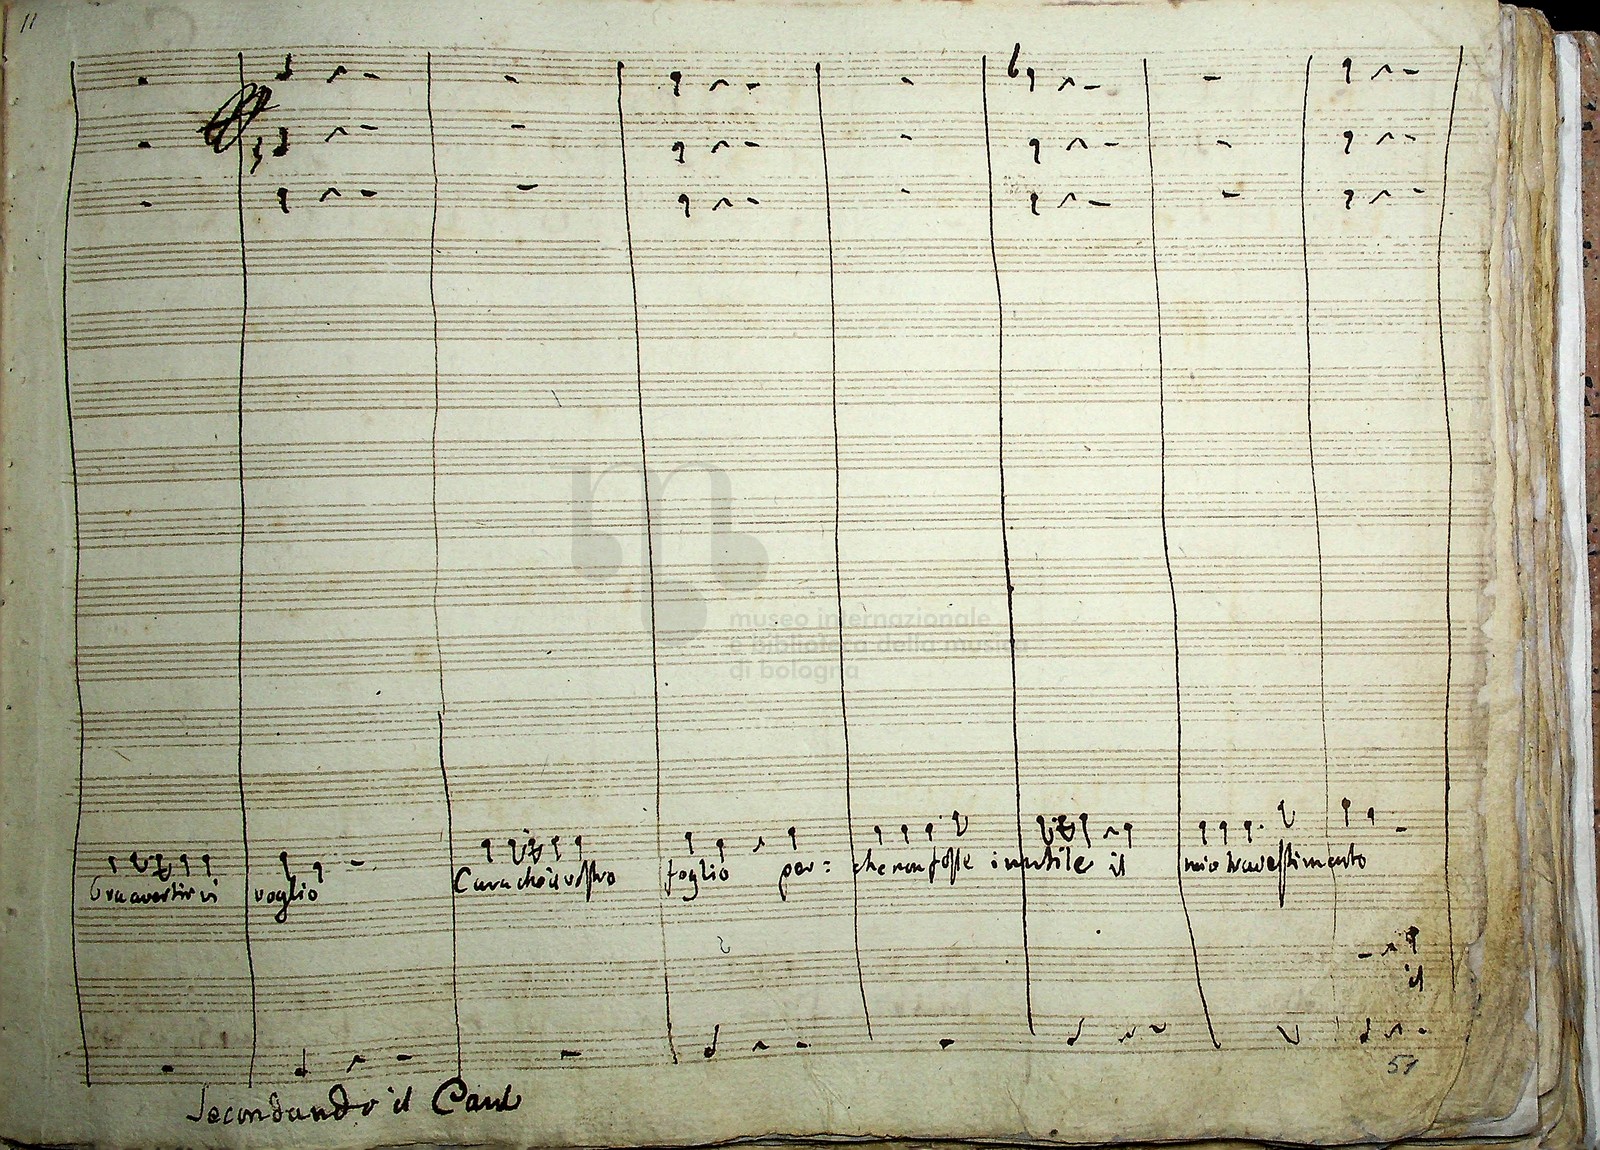 11
museo internazionale
e biblioteca della musica
di bologna
Ora avertir vi voglio Cara che il vostro foglio per: che non fosse inutile il mio travestimento
il
51
Secondando il Cant